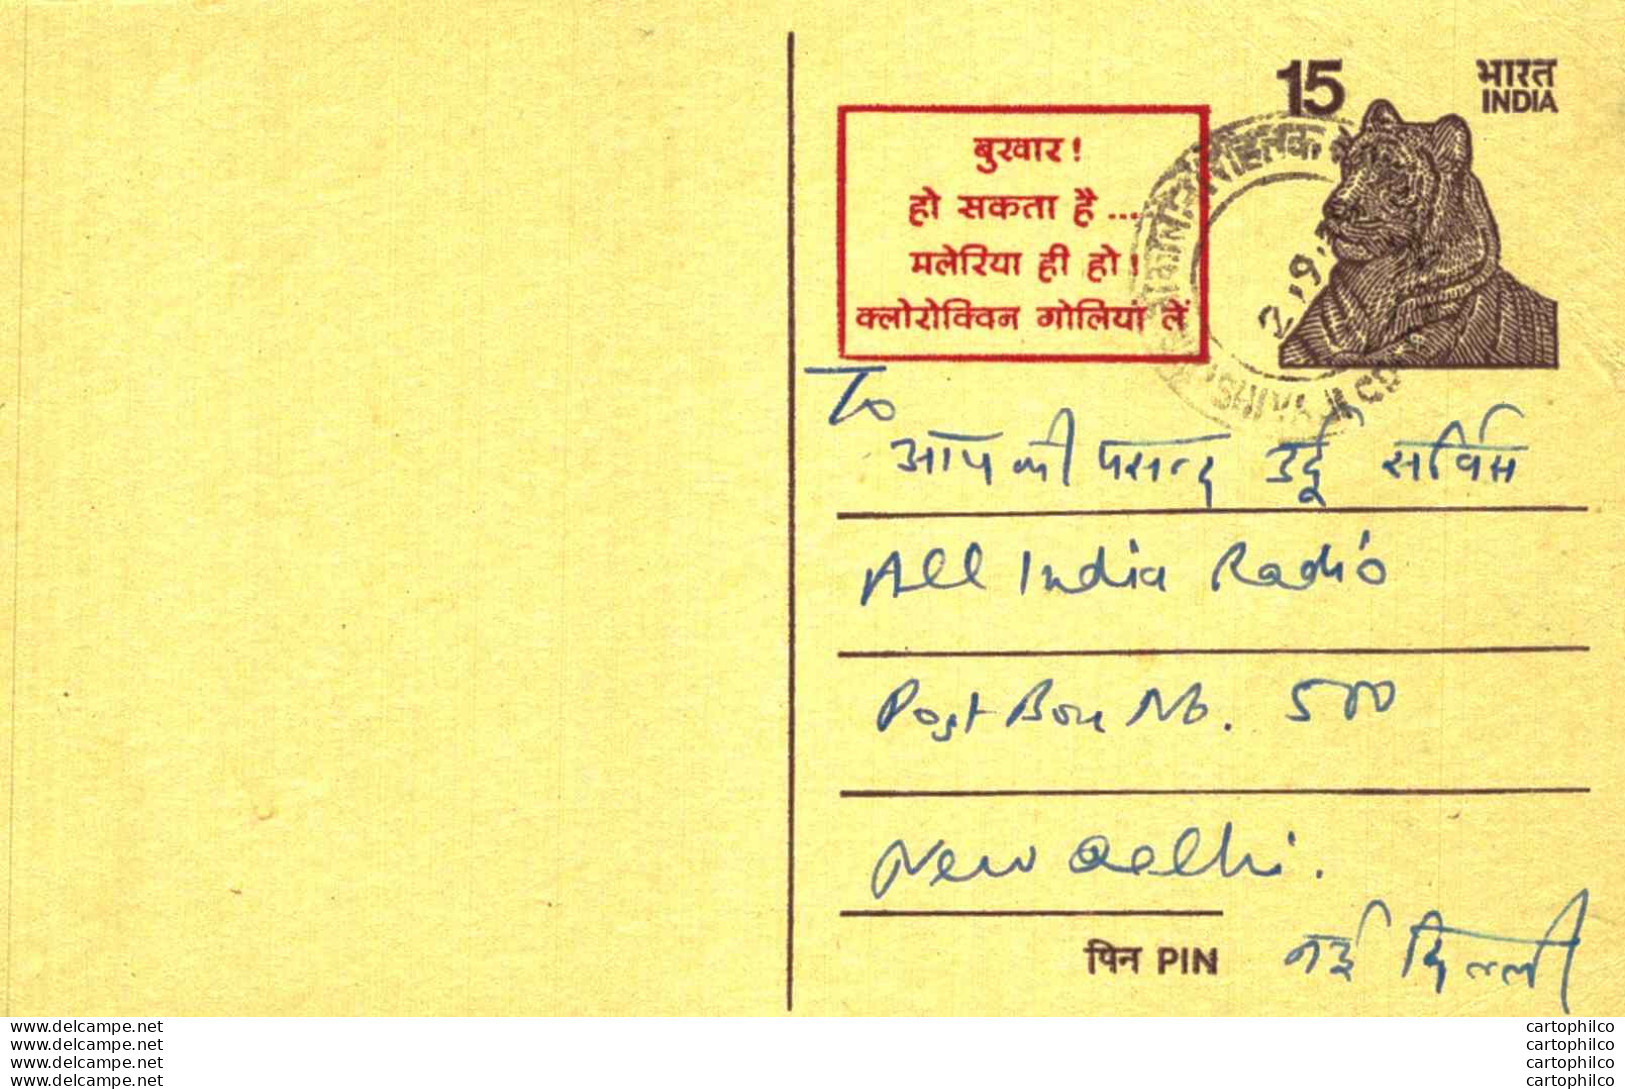 15
भारत
INDIA
बुखार!
हो सकता है...
मलेरिया ही हो!
क्लोरोक्विन गोलियां लें
To
आपकी पसन्द उर्दू सर्विस
All India Radio
Post Box No. 500
New Delhi.
पिन PIN
नई दिल्ली
www.delcampe.net
www.delcampe.net
www.delcampe.net
www.delcampe.net
cartophilco
cartophilco
cartophilco
cartophilco